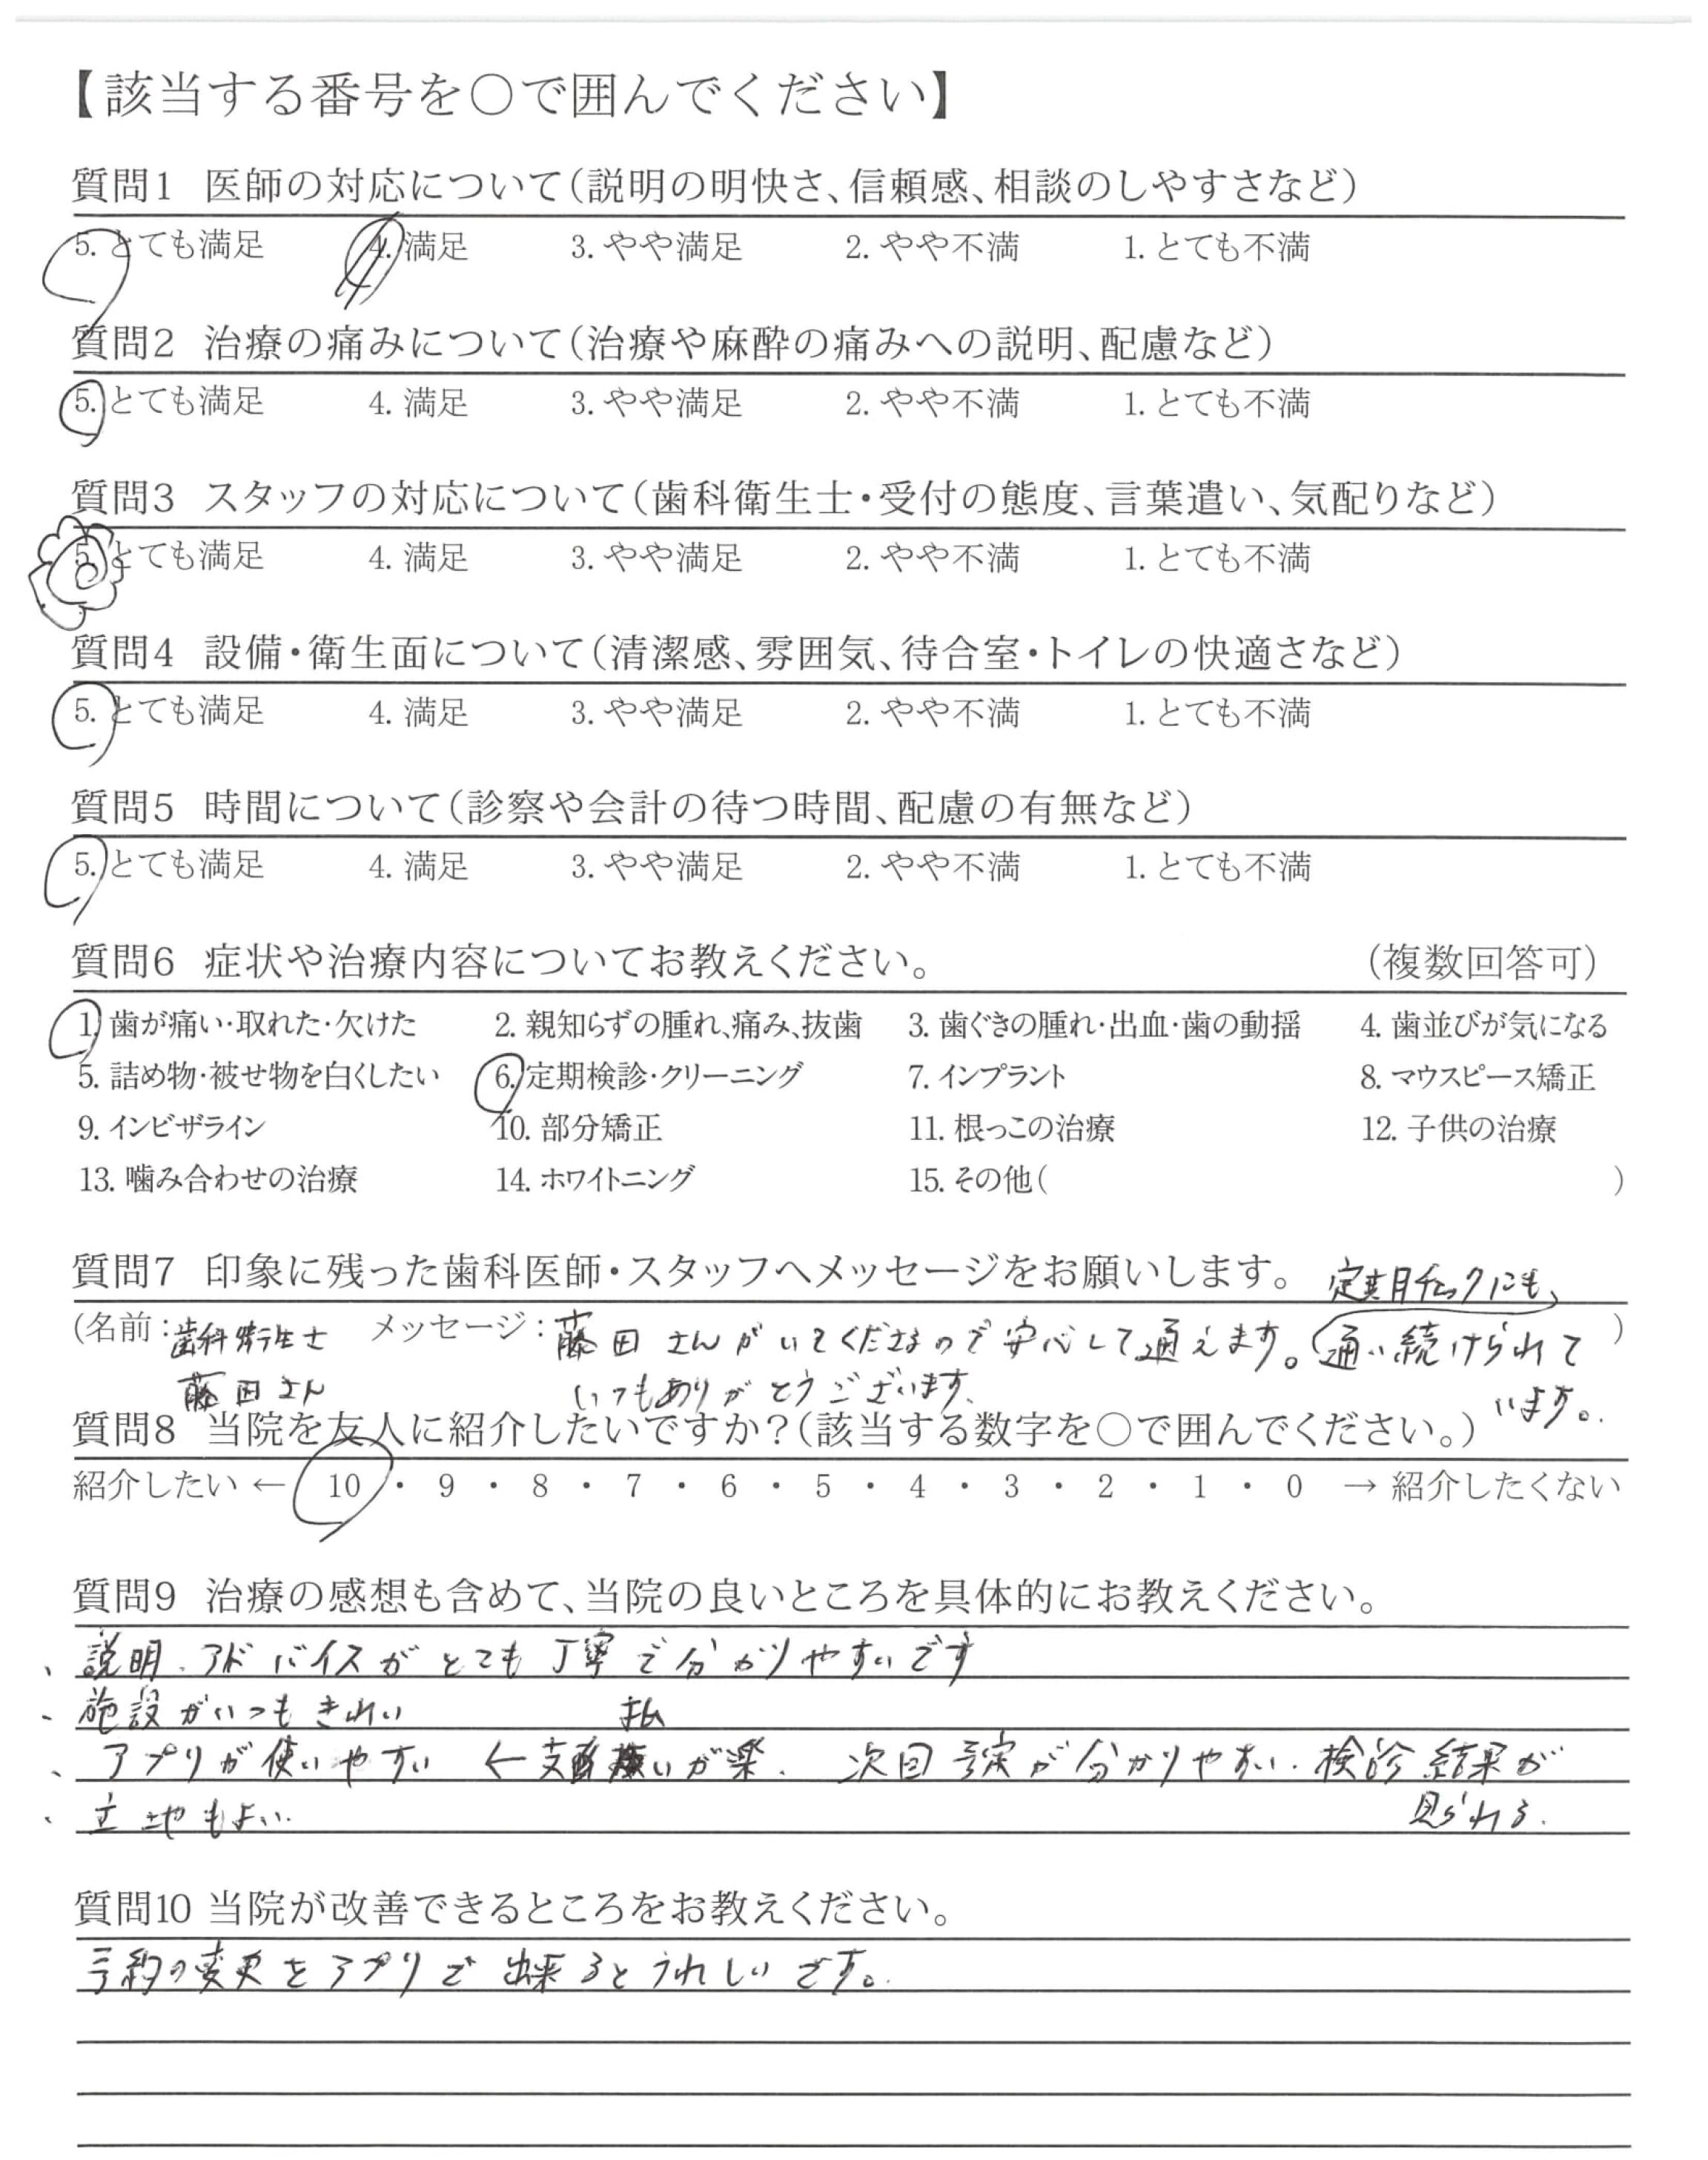 【該当する番号を○で囲んでください】
質問1 医師の対応について(説明の明快さ、信頼感、相談のしやすさなど)
5. とても満足 4. 満足 3. やや満足 2. やや不満 1. とても不満
質問2 治療の痛みについて(治療や麻酔の痛みへの説明、配慮など)
5. とても満足 4. 満足 3. やや満足 2. やや不満 1. とても不満
質問3 スタッフの対応について(歯科衛生士・受付の態度、言葉遣い、気配りなど)
5. とても満足 4. 満足 3. やや満足 2. やや不満 1. とても不満
質問4 設備・衛生面について(清潔感、雰囲気、待合室・トイレの快適さなど)
5. とても満足 4. 満足 3. やや満足 2. やや不満 1. とても不満
質問5 時間について(診察や会計の待つ時間、配慮の有無など)
5. とても満足 4. 満足 3. やや満足 2. やや不満 1. とても不満
質問6 症状や治療内容についてお教えください。 (複数回答可)
1. 歯が痛い・取れた・欠けた 2. 親知らずの腫れ、痛み、抜歯 3. 歯ぐきの腫れ・出血・歯の動揺 4. 歯並びが気になる
5. 詰め物・被せ物を白くしたい 6. 定期検診・クリーニング 7. インプラント 8. マウスピース矯正
9. インビザライン 10. 部分矯正 11. 根っこの治療 12. 子供の治療
13. 噛み合わせの治療 14. ホワイトニング 15. その他( )
質問7 印象に残った歯科医師・スタッフへメッセージをお願いします。 定期チェックにも、
(名前: 歯科衛生士 メッセージ: 藤田さんがいてくださるので安心して通えます。通い続けられて )
藤田さん いつもありがとうございます。 います。
質問8 当院を友人に紹介したいですか?(該当する数字を○で囲んでください。)
紹介したい ← 10 ・ 9 ・ 8 ・ 7 ・ 6 ・ 5 ・ 4 ・ 3 ・ 2 ・ 1 ・ 0 → 紹介したくない
質問9 治療の感想も含めて、当院の良いところを具体的にお教えください。
、説明、アドバイスがとても丁寧で分かりやすいです
、施設がいつもきれい 払
、アプリが使いやすい ← 支いが楽、次回予定が分かりやすい、検診結果が
、立地もよい. 見られる.
質問10 当院が改善できるところをお教えください。
予約の変更をアプリで出来るとうれしいです。